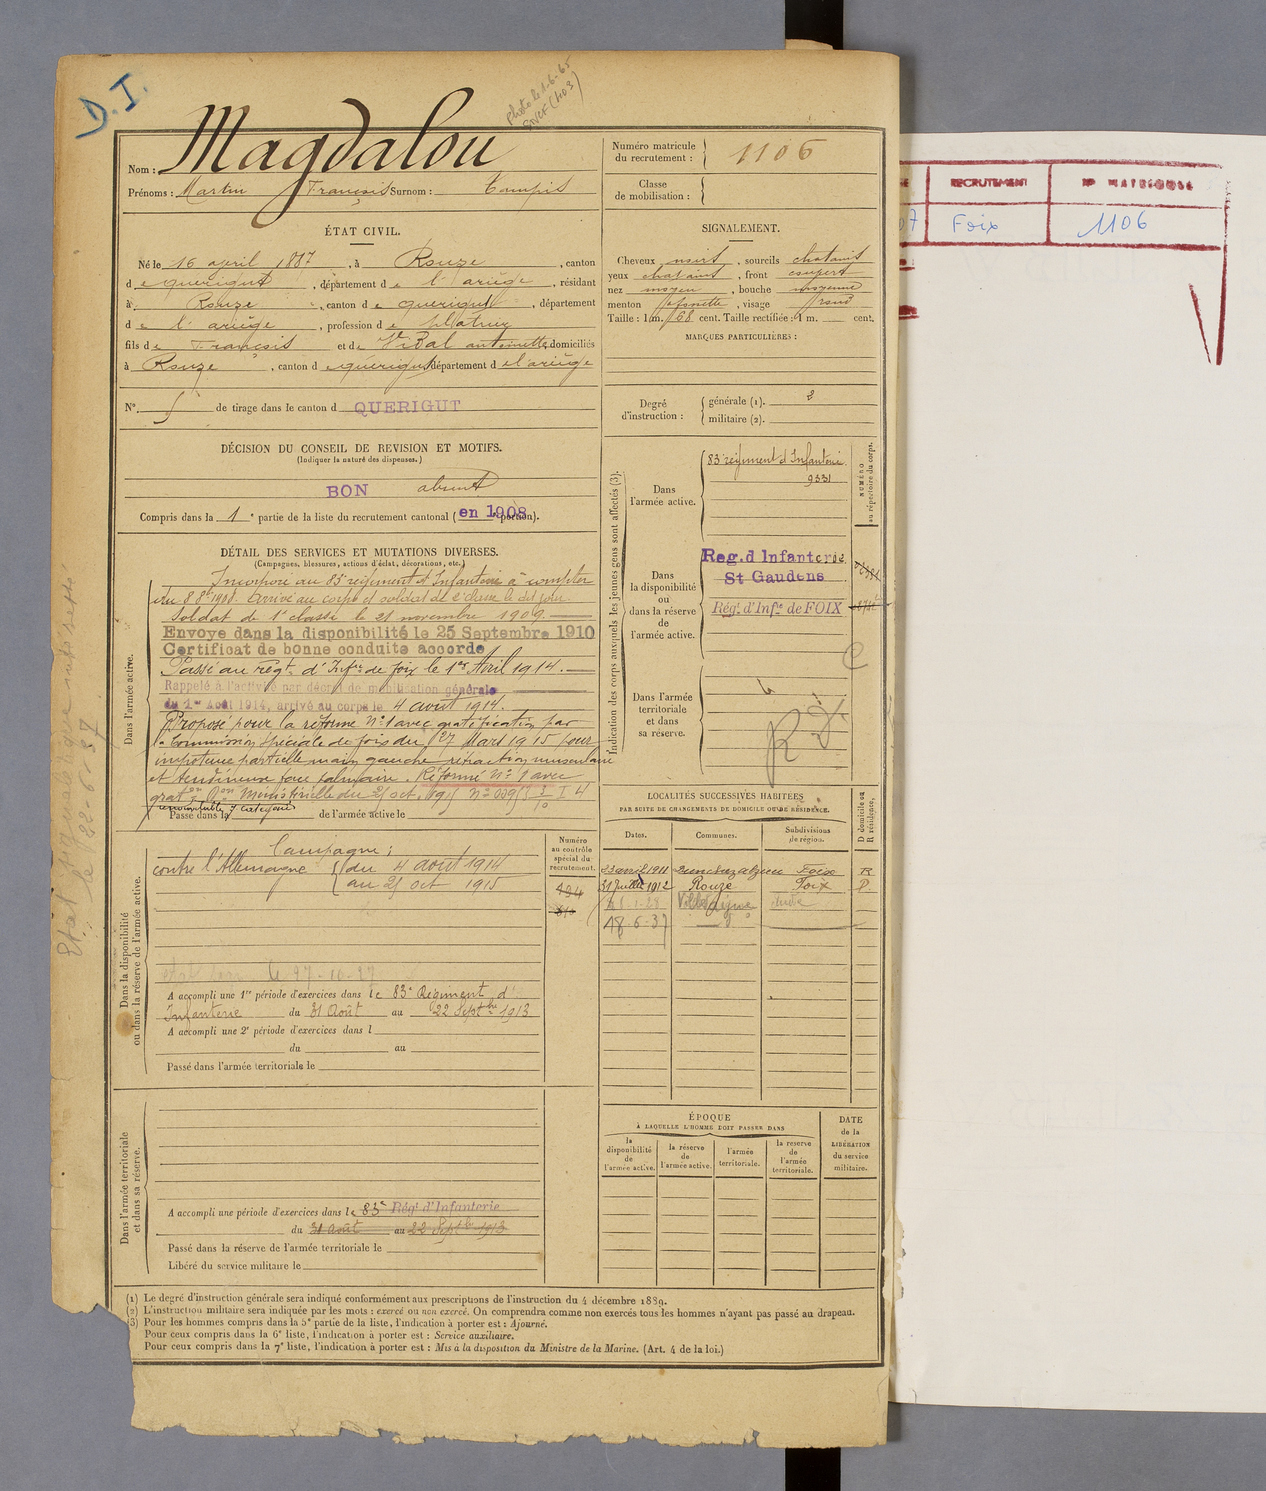 D.I.
photo le 1-6-65
Magdalou
Nom :
Prénoms : Martin François Surnom : Tampis
ÉTAT CIVIL.
Né le 16 april 1887, à Rouze, canton
de Querigut, département de l'ariège, résidant
à Rouze, canton de Querigut, département
de l'ariège, profession de platrier
fils de François et de Vidal antoinette domiciliés
à Rouze, canton de quérigut département de l'ariège
N° 5 de tirage dans le canton d QUERIGUT
DÉCISION DU CONSEIL DE REVISION ET MOTIFS.
(Indiquer la nature des dispenses.)
BON absent
Compris dans la 1e partie de la liste du recrutement cantonal (en 1908 portion).
DÉTAIL DES SERVICES ET MUTATIONS DIVERSES.
(Campagnes, blessures, actions d'éclat, décorations, etc.)
Dans l'armée active.
Incorporé au 83e régiment d'Infanterie à compter
du 8 8bre 1908. Arrivé au corps et soldat de 2e classe le dit jour.
Soldat de 1e classe le 21 novembre 1909.
Envoyé dans la disponibilité le 25 Septembre 1910
Certificat de bonne conduite accordé
Passé au Régt. d'Infie de foix le 1er Avril 1914.
Rappelé à l'activité par décret de mobilisation générale
du 1er Août 1914, arrivé au corps le 4 août 1914.
Proposé pour la réforme N°1 avec gratification par
la Commission Spéciale de foix du 27 Mars 1915 pour
impotence partielle main gauche rétraction musculaire
et tendineuse face palmaire. Réformé N° 1 avec
graton Don Ministérielle du 25 oct. 1915
renouvelable 7e catégorie
Passé dans la de l'armée active le
Dans la disponibilité
ou dans la réserve de l'armée active.
Campagne :
contre l'Allemagne { du 4 août 1914
au 25 oct 1915
Numéro
au contrôle
spécial du
recrutement.
494
le 27-10-27
A accompli une 1re période d'exercices dans le 83e Régiment d'
Infanterie du 31 Août au 22 Septbre 1913
A accompli une 2e période d'exercices dans l
du au
Passé dans l'armée territoriale le
Dans l'armée territoriale
et dans sa réserve.
A accompli une période d'exercices dans le 83e Régt d'Infanterie
du 31 Août au 22 Septbre 1913
Passé dans la réserve de l'armée territoriale le
Libéré du service militaire le
Numéro matricule
du recrutement : 1106
Classe
de mobilisation :
SIGNALEMENT.
Cheveux noirs, sourcils chatains
yeux chatains, front couvert
nez moyen, bouche moyenne
menton fossette, visage rond
Taille : 1 m. 68 cent. Taille rectifiée : 1 m. cent.
MARQUES PARTICULIÈRES :
Degré
d'instruction :
générale (1). 2
militaire (2).
Indication des corps auxquels les jeunes gens sont affectés (3).
NUMÉRO
au répertoire du corps.
Dans
l'armée active.
83e régiment d'Infanterie
9331
Dans
la disponibilité
ou
dans la réserve
de
l'armée active.
Reg. d Infanterie
St Gaudens
Régt. d'Infie de FOIX
Dans l'armée
territoriale
et dans
sa réserve.
R.D.
LOCALITÉS SUCCESSIVES HABITÉES
PAR SUITE DE CHANGEMENTS DE DOMICILE OU DE RÉSIDENCE.
Dates. Communes. Subdivisions de région. D domicile ou R résidence.
23 avril 1911 Foix R
31 Juillet 1912 Rouze Foix D
Aude
18-6-37 — d°
ÉPOQUE
À LAQUELLE L'HOMME DOIT PASSER DANS
la disponibilité de l'armée active.
la réserve de l'armée active.
l'armée territoriale.
la réserve de l'armée territoriale.
DATE
de la
LIBÉRATION
du service
militaire.
(1) Le degré d'instruction générale sera indiqué conformément aux prescriptions de l'instruction du 4 décembre 1889.
(2) L'instruction militaire sera indiquée par les mots : exercé ou non exercé. On comprendra comme non exercés tous les hommes n'ayant pas passé au drapeau.
(3) Pour les hommes compris dans la 5e partie de la liste, l'indication à porter est : Ajourné.
Pour ceux compris dans la 6e liste, l'indication à porter est : Service auxiliaire.
Pour ceux compris dans la 7e liste, l'indication à porter est : Mis à la disposition du Ministre de la Marine. (Art. 4 de la loi.)
le 22-6-37
RECRUTEMENT N° MATRICULE
07 Foix 1106